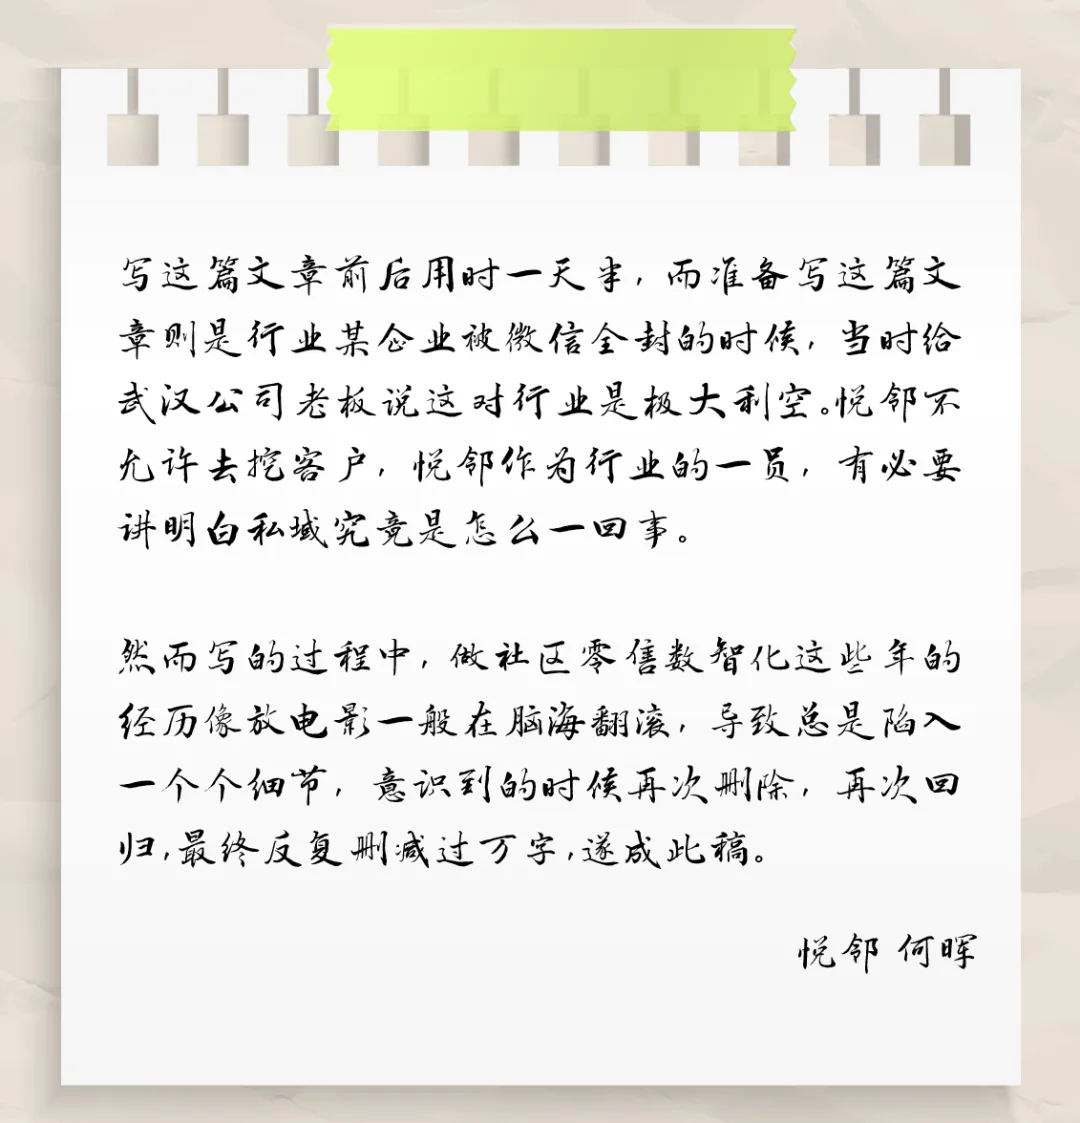 写这篇文章前后用时一天半，而准备写这篇文
章则是行业某企业被微信全封的时候，当时给
武汉公司老板说这对行业是极大利空。悦邻不
允许去挖客户，悦邻作为行业的一员，有必要
讲明白私域究竟是怎么一回事。
然而写的过程中，做社区零售数智化这些年的
经历像放电影一般在脑海翻滚，导致总是陷入
一个个细节，意识到的时候再次删除，再次回
归，最终反复删减过万字，遂成此稿。
悦邻 何晖